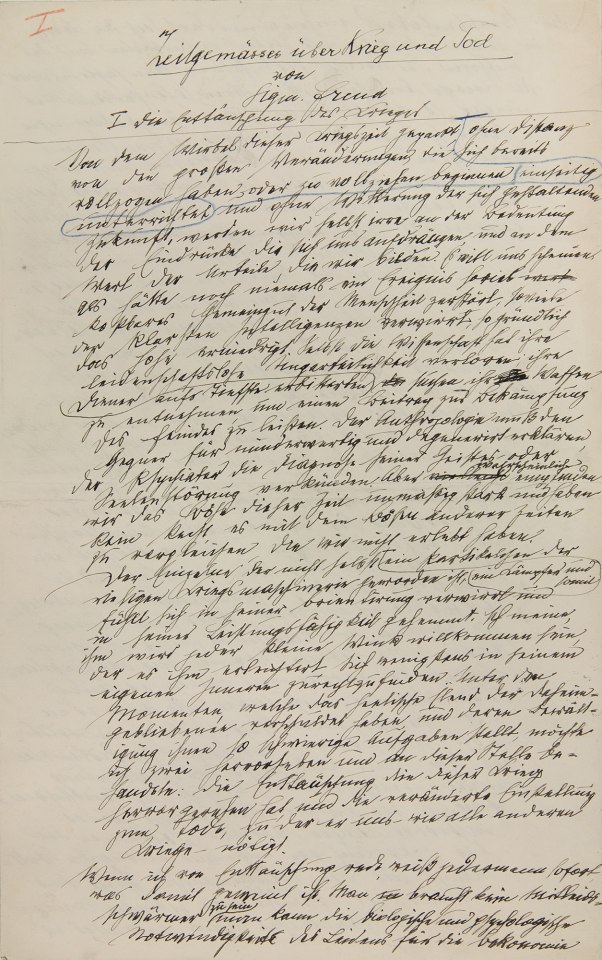 I
Zeitgemässes über Krieg und Tod
von
Sigm. Freud
I die Enttäuschung des Krieges
Von dem Wirbel dieser Kriegszeit gepackt ohne Distanz
von den großen Veränderungen die sich bereits
vollzogen haben oder zu vollziehen beginnen einseitig
unterrichtet und ohne Witterung der sich gestaltenden
Zukunft, werden wir selbst irre an der Bedeutung
der Eindrücke die sich uns aufdrängen, und an dem
Wert der Urteile, die wir bilden. Es will uns scheinen,
als hätte noch niemals ein Ereignis soviel
kostbares Gemeingut der Menschheit zerstört, soviele
der klarsten Intelligenzen verwirrt, so gründlich
das Hohe erniedrigt. Selbst die Wissenschaft hat ihre
leidenschaftslose Unparteilichkeit verloren, ihre
Diener aufs tiefste erbitterten suchen ihr Waffen
zu entnehmen um einen Beitrag zur Bekämpfung
des Feindes zu leisten. Der Anthropologe muß den
Gegner für minderwertig und degenerirt erklären,
der Psychiater die Diagnose seiner Geistes oder
Seelenstörung verkünden. Aber wahrscheinlich empfinden
wir das Böse dieser Zeit unmäßig stark und haben
kein Recht es mit dem Bösen anderer Zeiten
zu vergleichen die wir nicht erlebt haben.
Der Einzelne der nicht selbst ein Partikelchen der
riesigen Kriegsmaschinerie geworden ist, ein Kämpfer und somit
fühlt sich in seiner Orientirung verwirrt und
in seiner Leistungsfähigkeit gehemmt. Ich meine
ihm wird jeder kleine Wink willkommen sein,
der es ihm erleichtert sich wenigstens in seinem
eigenen Innern zurechtzufinden. Unter den
Momenten, welche das seelische Elend der Daheim-
gebliebenen verschuldet haben, und deren Bewält-
igung ihnen so schwierige Aufgaben stellt möchte
ich zwei hervorheben und an dieser Stelle be-
handeln: die Enttäuschung die dieser Krieg
hervorgerufen hat und die veränderte Einstellung
zum Tode, zu der er uns wie alle anderen
Kriege nötigt.
Wenn ich von Enttäuschung rede weiß jedermann sofort
was damit gemeint ist. Man braucht kein Mitleids-
schwärmer zu sein, man kann die biologische und psychologische
Notwendigkeit des Leidens für die Oekonomie